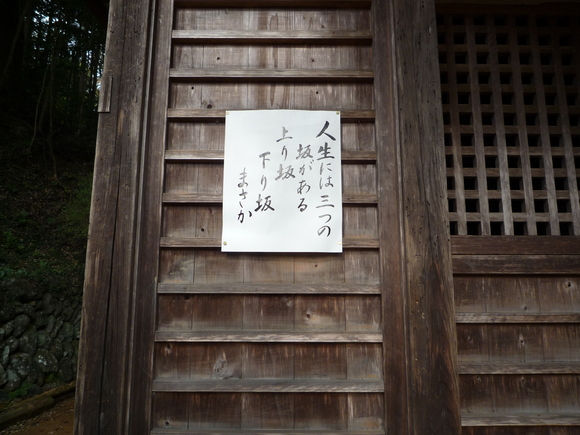 人生には三つの
坂がある
上り坂
下り坂
まさか